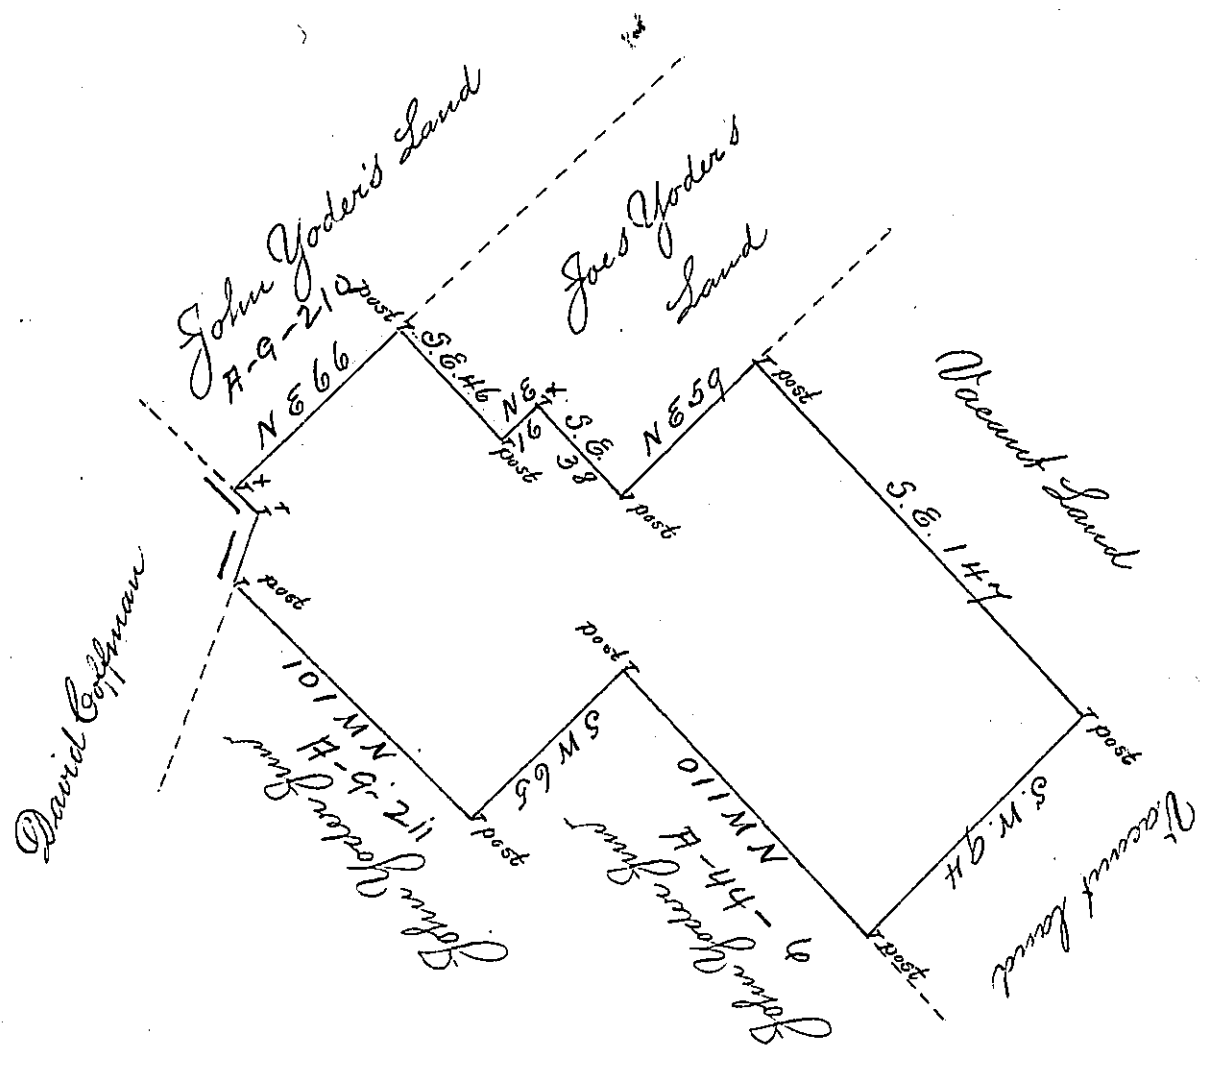 John Yoder's Land
A-9-210
N E 66
post
S.E. 46
post
N E
16
S.E.
38
post
Joes Yoder's
Land
N E 59
post
Vacant Land
S.E. 147
post
Vacant Land
S.W. 94
post
N W 110
A-44-6
John Yoder Junr
post
S W 65
post
N W 101
A-9-211
John Yoder Junr
post
David Coffman